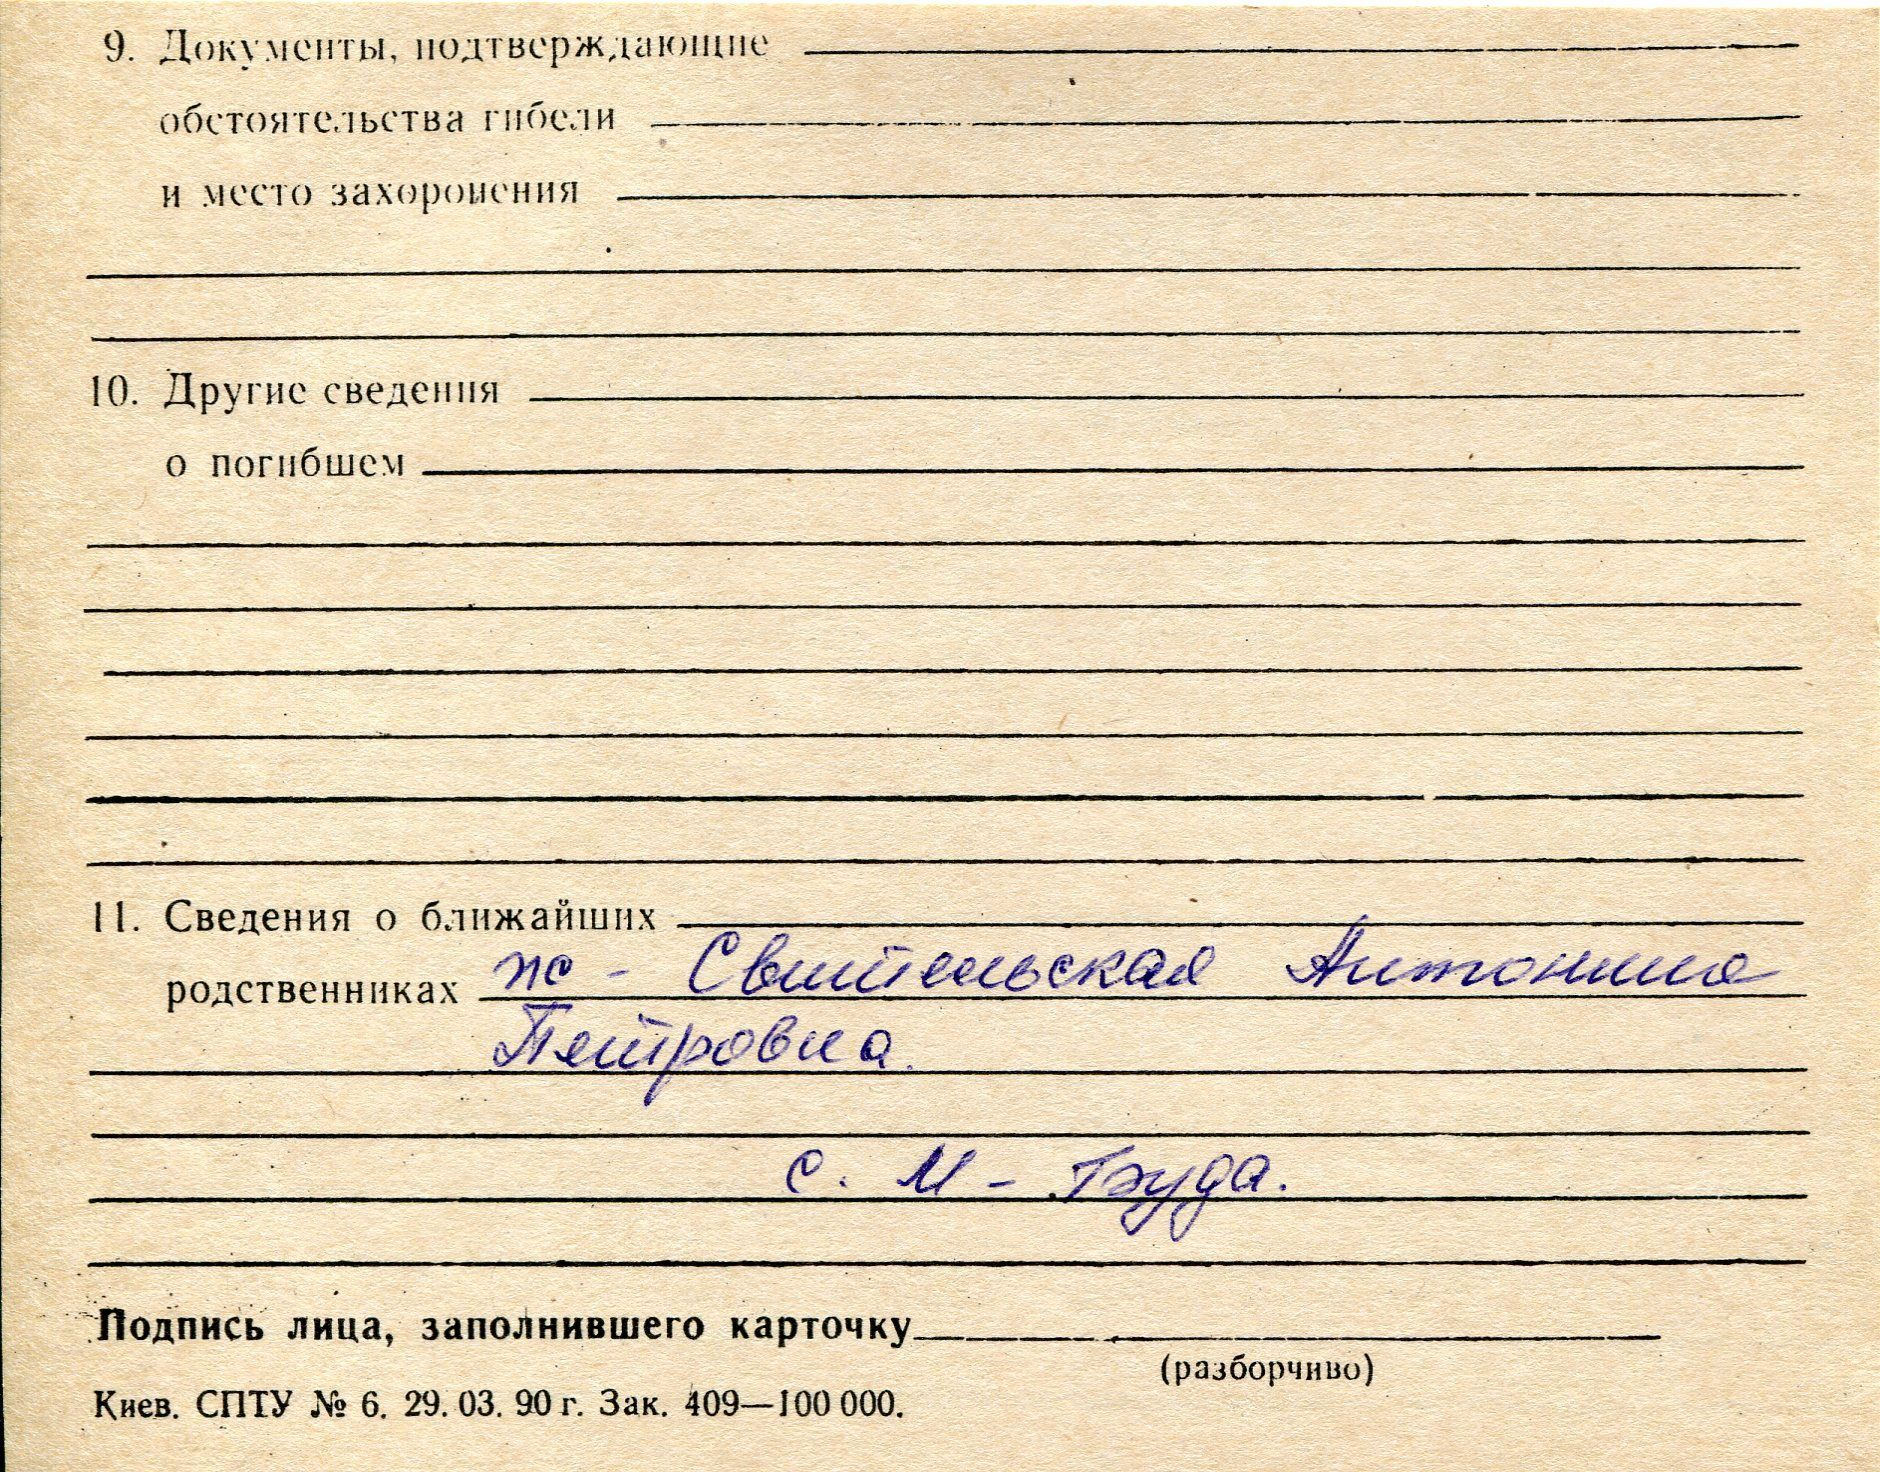 9. Документы, подтверждающие
обстоятельства гибели
и место захоронения
10. Другие сведения
о погибшем
11. Сведения о ближайших
родственниках ж - Свительская Антонина
Петровна.
с. М - Буда.
Подпись лица, заполнившего карточку
(разборчиво)
Киев. СПТУ № 6. 29. 03. 90 г. Зак. 409—100 000.